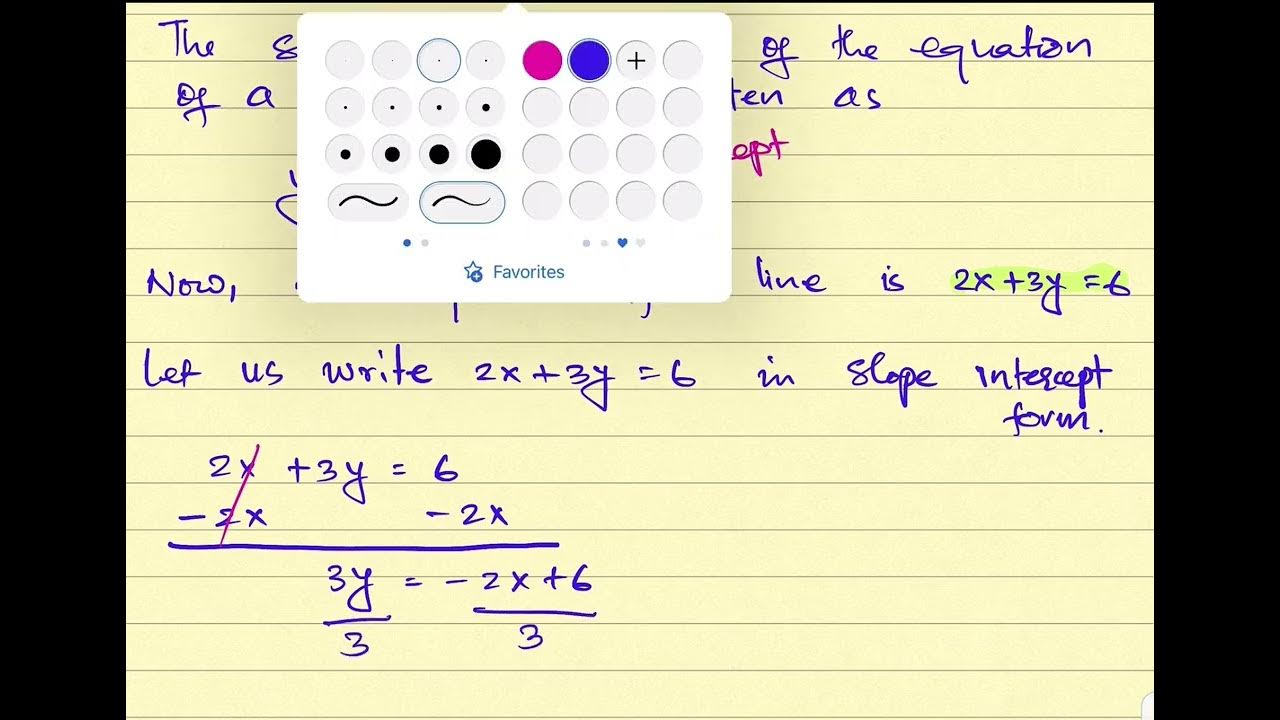 The of the equation
of a as
Favorites
Now, line is 2x+3y=6
Let us write 2x+3y=6 in slope intercept
form.
2x +3y = 6
-2x -2x
3y = -2x+6
3 3